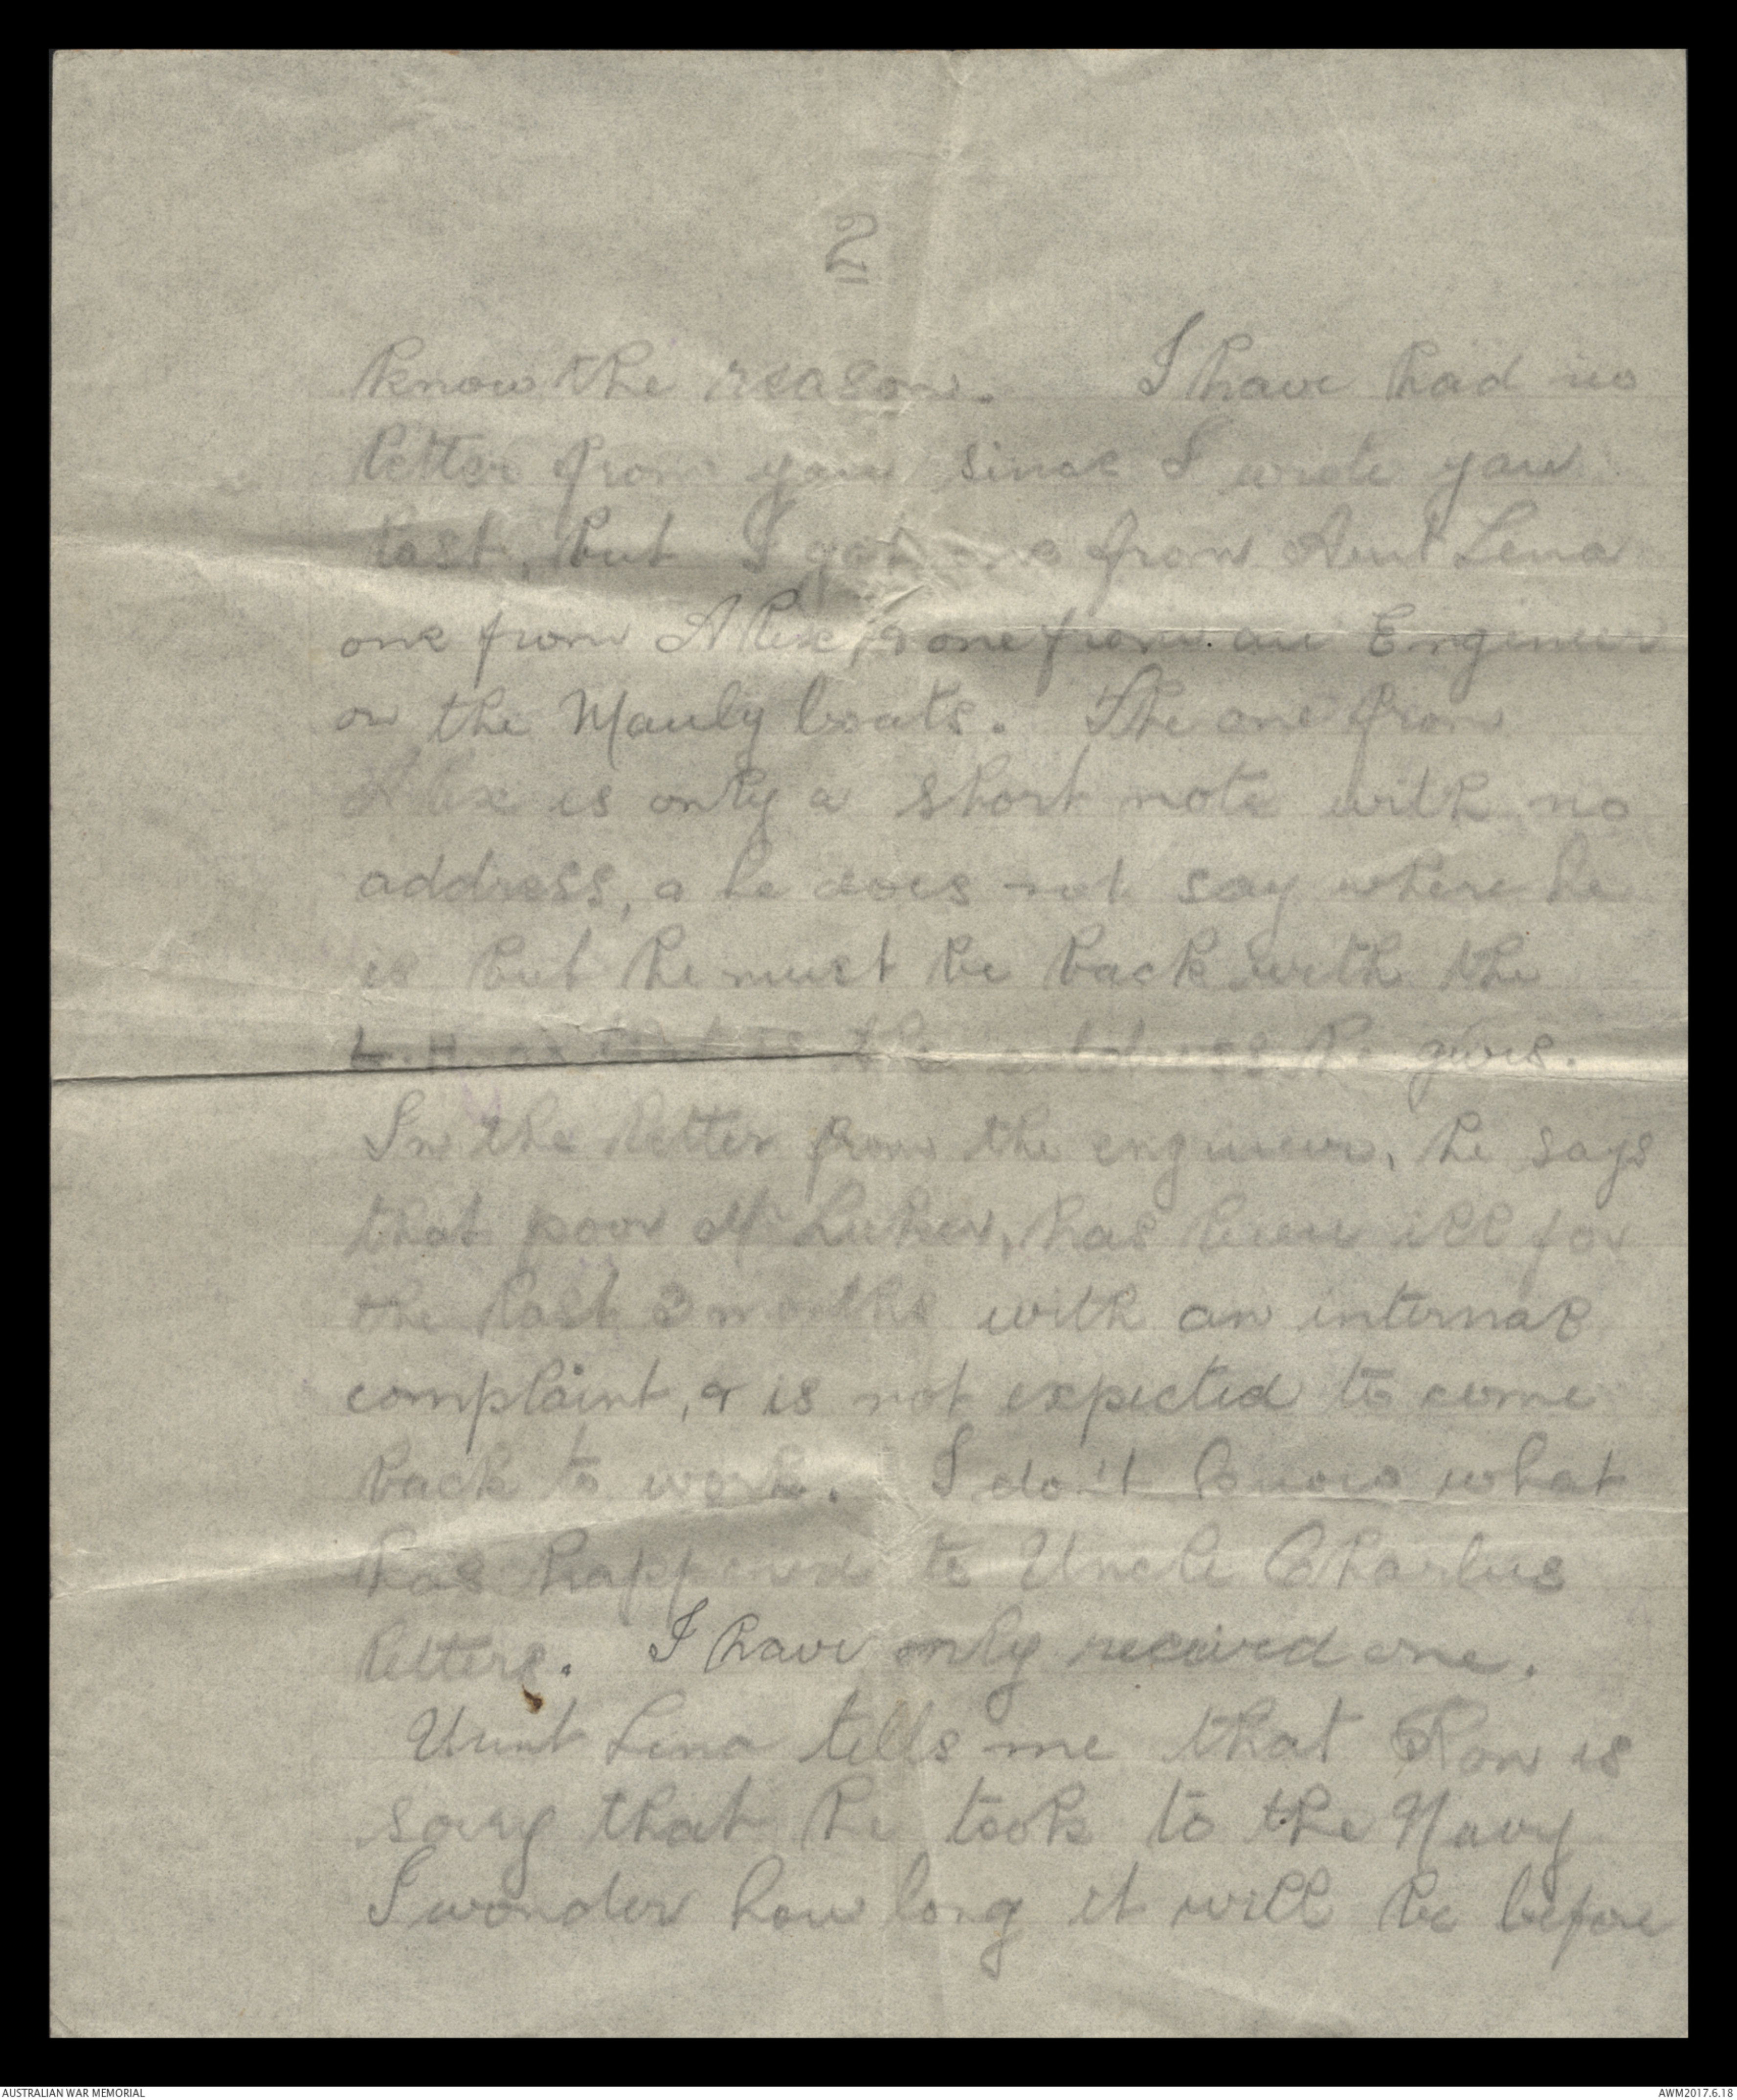 2
know the reason. I have had no
letter from you since I wrote you
last, but I got one from Aunt Lena
one from Alex, & one from an Engineer
on the Manly boats. The one from
Alex is only a short note with no
address, & he does not say where he
is but he must be back with the
L.H. as that is the address he gives.
In the letter from the engineer, he says
that poor Mr Luker, has been ill for
the last 3 months with an internal
complaint, & is not expected to come
back to work. I don't know what
has happened to Uncle Charlies
letters. I have only received one.
Aunt Lena tells me that Ron is
sorry that he took to the Navy
I wonder how long it will be before
AUSTRALIAN WAR MEMORIAL
AWM2017.6.18